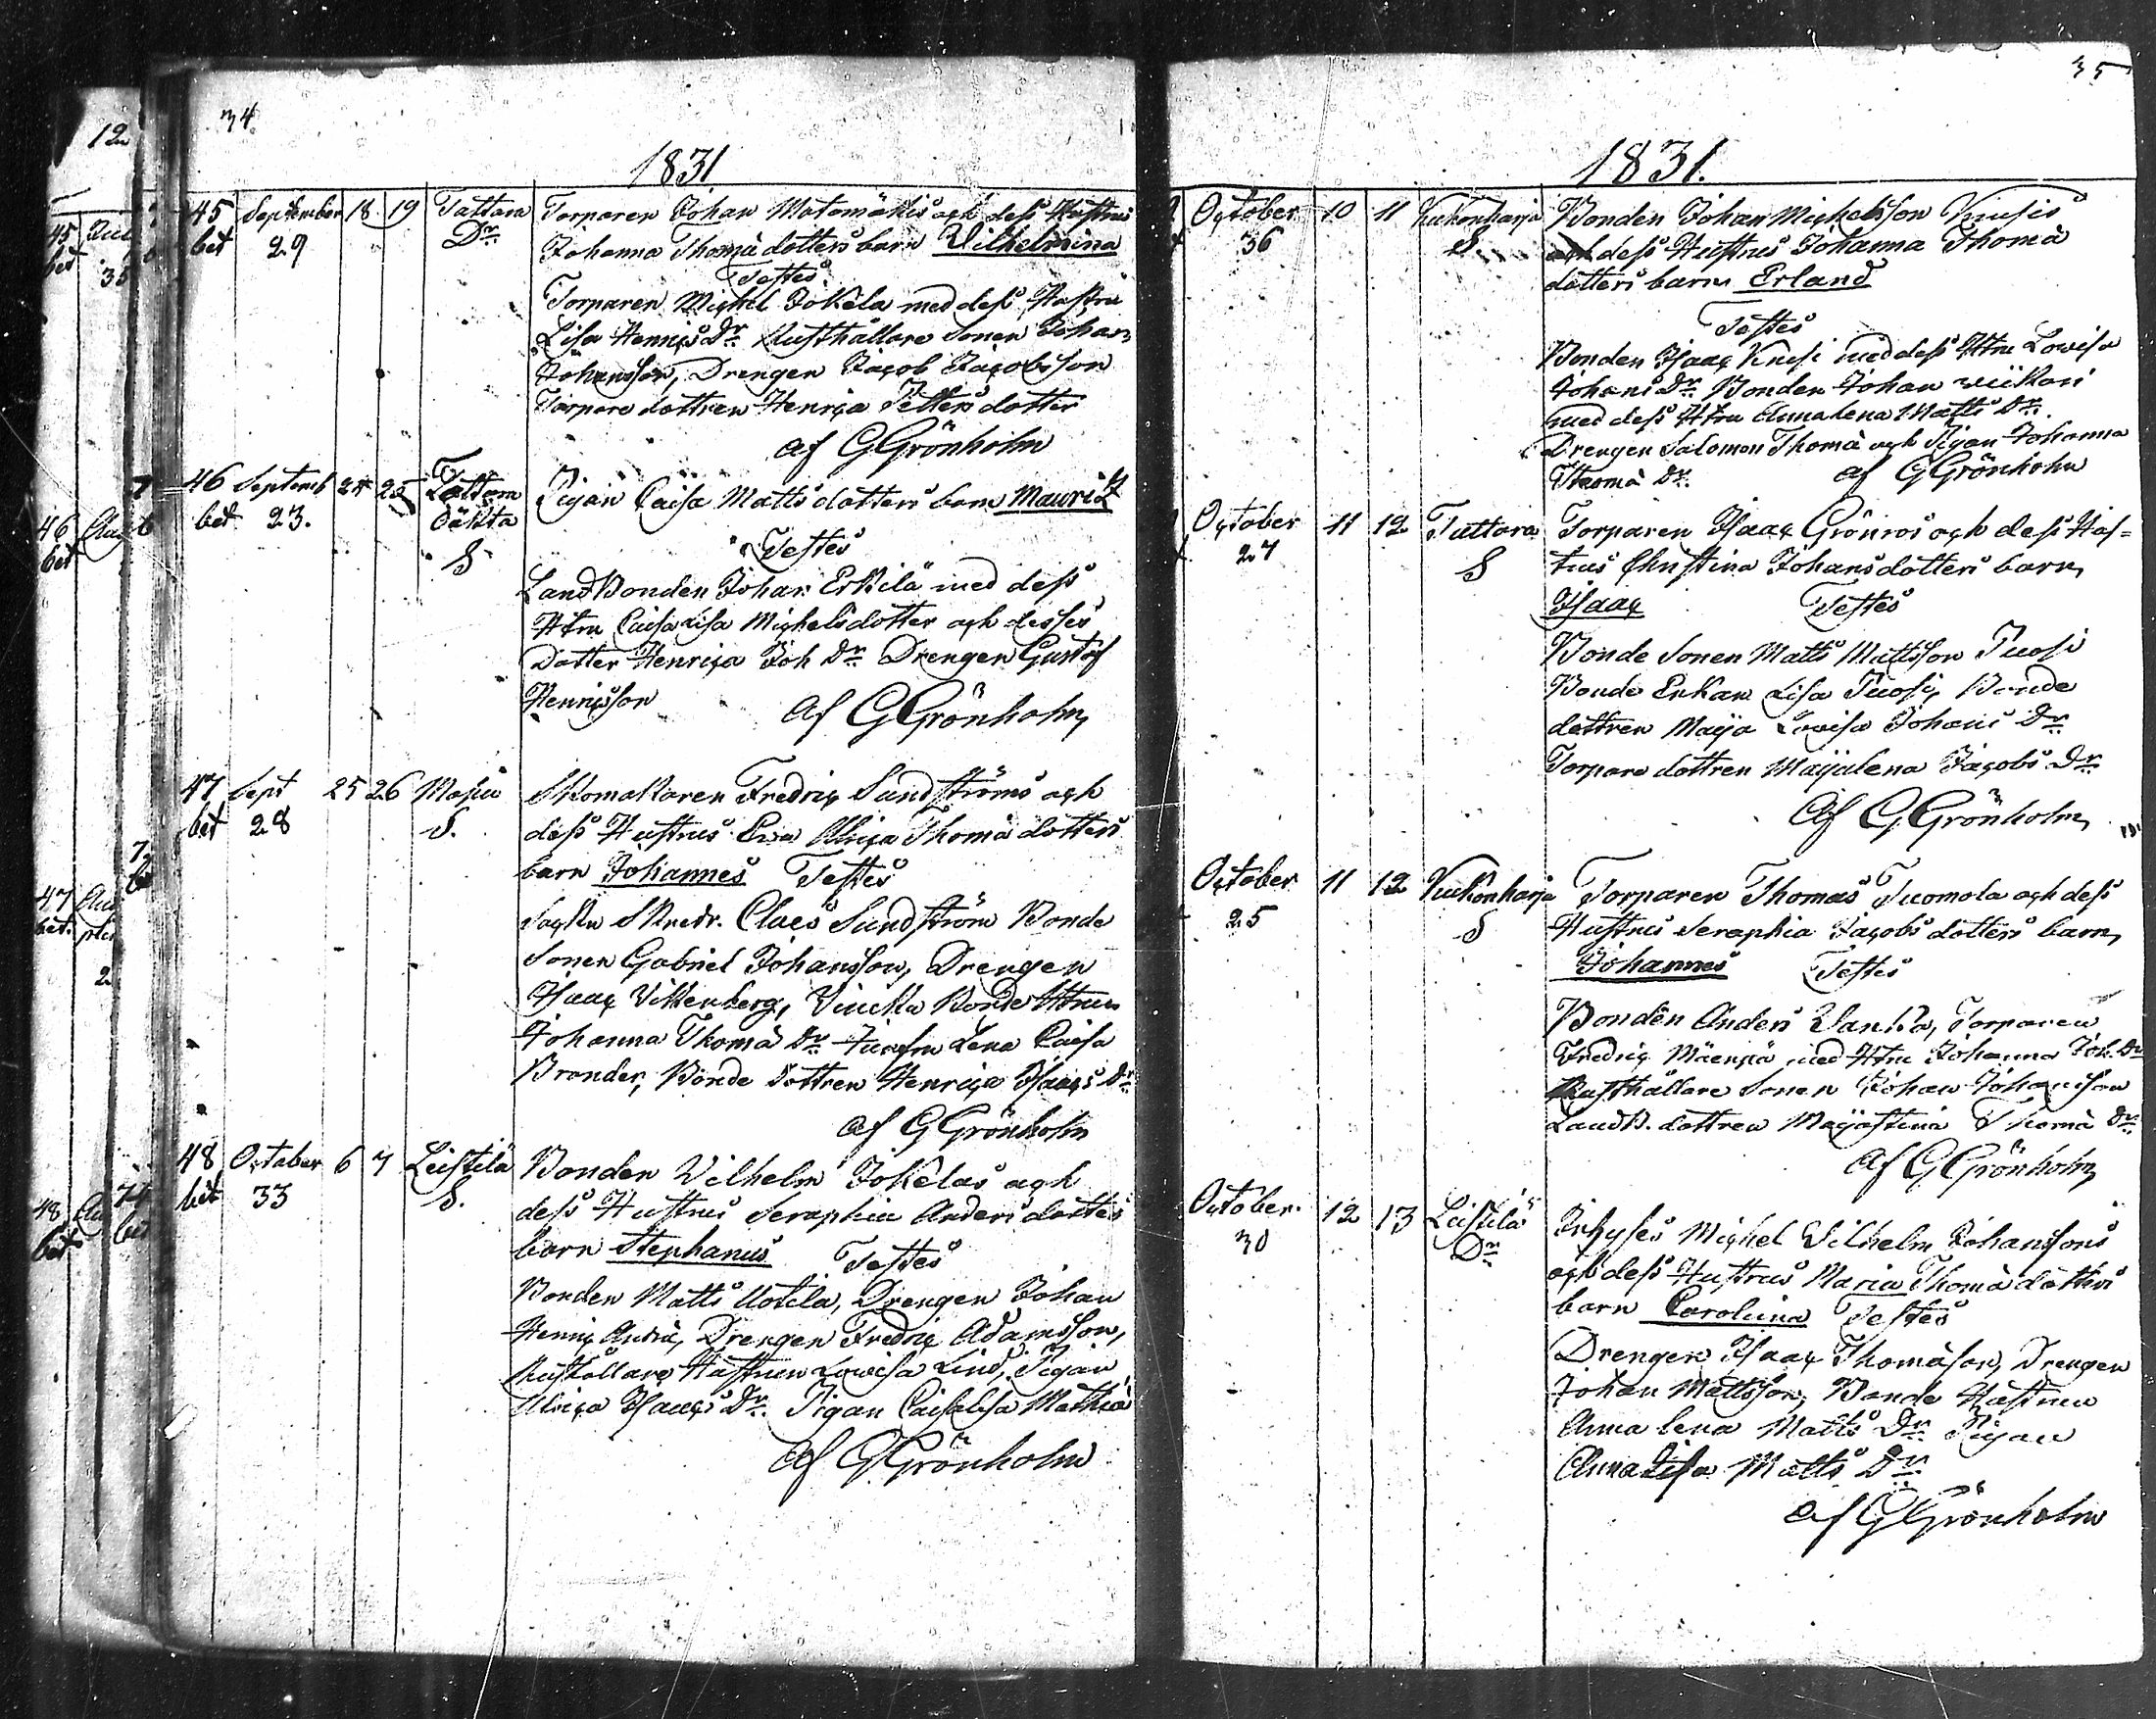 12
45
bet
35
46
bet
47
bet
2
48
bet
34
1831
45 September 18 19 Tattara Torparen Johan Matomäkis och dess Hustrus
bet 29 Dr. Johanna Thomä dotters barn Wilhelmina
Testes
Torparen Michel Jokela med dess Hustru
Lisa Henrics Dr. Rusthållare Sonen Johan
Johansson, Drengen Jacob Jacobsson
Torpare dottren Henrica Petters dotter
af G Grönholm
46 Septemb 24 25 Tattara Pigan Caisa Matts dotters barn Mauritz
bet 23. S
Testes
LandBonden Johan Erkilä med dess
Htru Caisa Lisa Michelsdotter och desses
Dotter Henrica Joh Dr. Drengen Gustaf
Henricsson af G Grönholm
47 Sept 25 26 Skomakaren Fredric Sundströms och
bet 28 S. dess Hustrus Eva Ulrica Thomä dotters
barn Johannes Testes
Sockn Skredr. Claes Sundström Bonde
Sonen Gabriel Johansson, Drengen
Isaac Vikenberg, Bonde Htrun
Johanna Thomä Dr. Jumfru Lena Caisa
Brander, Bonde Dottren Henrica Isaacs Dr.
af G Grönholm
48 October 6 7 Leistilä Bonden Wilhelm Jokelas och
bet 33 S. dess Hustrus Seraphia Anders dotters
barn Stephanus Testes
Bonden Matts Uotila, Drengen Johan
Henric Drengen Fredric Adamsson,
Rusthållare Hustrun Lovisa Lind, Pigan
Ulrica Isaacs Dr. Pigan Caisa Lisa Mathiä
af G Grönholm
35
1831.
October 10 11 Kukonharja Bonden Johan Michelsson Knusis
36 S och dess Hustrus Johanna Thomä
dotters barn Erland
Testes
Bonden Isaac Knusi med dess Htru Lovisa
Johans Dr. Bonden Johan
med dess Htru Annalena Matts Dr.
Drengen Salomon Thomä och Pigan Johanna
Thomä Dr. af G Grönholm
October 11 12 Tattara Torparen Isaac Grönros och dess Hus=
27 S trus Christina Johansdotters barn
Isaac Testes
Bonde Sonen Matts Mattsson
Bonde Enkan Lisa Bonde
dottren Maija Lovisa Johans Dr.
Torpare dottren Maijalena Jacobs Dr.
af G Grönholm
October 11 12 Kukonharja Torparen Thomas Tuomola och dess
25 S Hustrus Seraphia Jacobs dotters barn
Johannes Testes
Bonden Anders Torparen
Fredric Mäenpä med Htru Johanna Joh. Dr
Rusthållare Sonen Johan Johansson
LandB. dottren Maijastina Thomä Dr.
af G Grönholm
October 12 13 Leistilä Inhyses Michel Wilhelm Johanssons
30 Dr. och dess Hustrus Maria Thomä dotters
barn Carolina Testes
Drengen Isaac Thomäson, Drengen
Johan Mattsson, Bonde Hustrun
Anna Lena Matts Dr. Pigan
Anna Lisa Matts Dr.
af G Grönholm